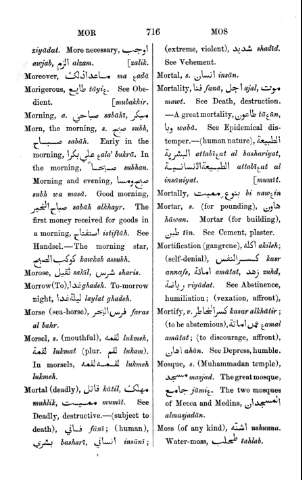 MOR 716 MOS
ziyádat. More necessary, اوجب
awjab, الزم alzam. [zalik.
Moreover, ما عدا ذلك ma ȝadā
Morigerous, طايع táyiȝ. See Obe-
dient. [mubakhir.
Morning, a صباحي sabáhi, مبكر
Morn, the morning, s. صبح subh,
صباح sabáh. Early in the
morning, علي بكرا ȝala' bukrá. In
the morning, صبحا subhan.
Morning and evening, صبح ومسا
subh wa masá. Good morning,
صباح الخير sabáh alkhayr. The
first money received for goods in
a morning, استفتاح istiftáh. See
Handsel.—The morning star,
كوكب الصبح kawkab assubh.
Morose, نكل nekil, شرس sharis.
Morrow (To), غدا ghadah. To-morrow
night, ليلة غدا laylat ghadeh.
Morse (sea-horse), فرس البحر faras
al bahr.
Morsel, s. (mouthful), لقمه lukmeh,
لقمة lukmat (plur. لقم lukam).
In morsels, لقمه لقمه lukmeh
lukmeh.
Mortal (deadly), قاتل kátil, مهلك
mahlik, مميت mumít. See
Deadly, destructive.—(subject to
death), فاني fáni; (human),
بشري basharí, انساني insáni;
(extreme, violent), شديد shadíd.
See Vehement.
Mortal, s. انسان insán.
Mortality, فنا faná, اجل ajal, موت
mawt. See Death, destruction.
—A great mortality, طاعون táȝún,
وبا wabá. See Epidemical dis-
temper.—(human nature), الطبيعة
البشرية attabiȝat al bashariyat,
الطبيعة الانسانية attabiȝat al
insániyat. [mumít.
Mortally, بنوع مميت bi nawȝin
Mortar, s. (for pounding), هاون
háwan. Mortar (for building),
طين tín. See Cement, plaster.
Mortification (gangrene), اكله akileh;
(self-denial), كسر النفس kasr
annafs, اماتة amátat, زهد zuhd,
رياضة riyádat. See Abstinence,
humiliation; (vexation, affront),
Mortify, v. كسر الخاطر kasar alkhátir;
(to be abstemious), عمل اماتة ȝamal
amátat; (to discourage, affront),
اهان ahán. See Depress, humble.
Mosque, s. (Muhammadan temple),
مسجد masjad. The great mosque,
جامع jámiȝ. The two mosques
of Mecca and Medina, المسجدان
almasjadán.
Moss (of any kind), اشنه ushneh.
Water-moss, طحلب tahlab.